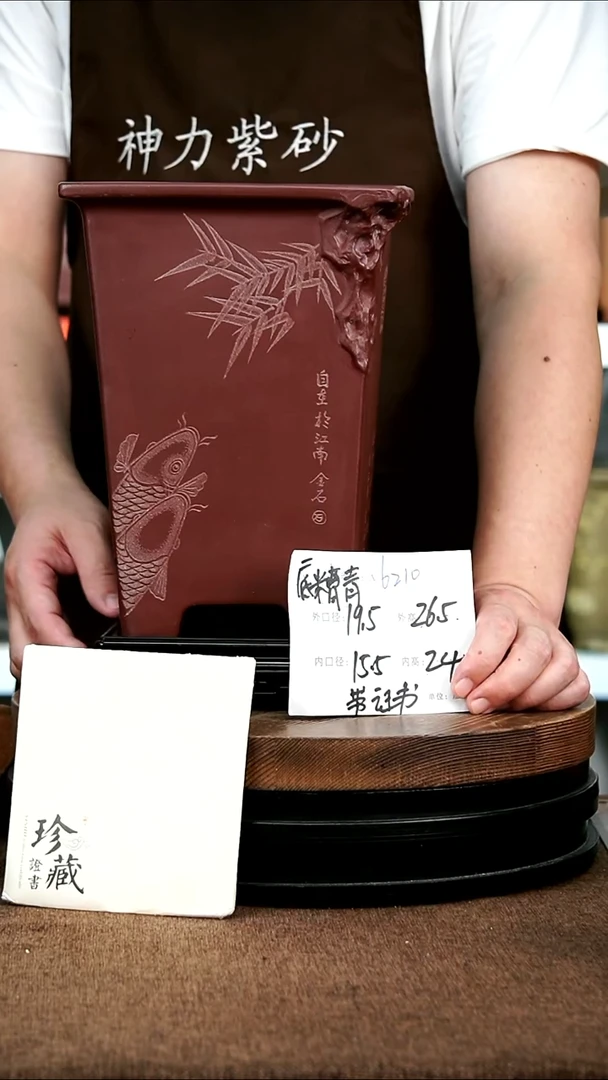 神力紫砂
自在於江南 金石
石
底槽青 6210
外口径: 19.5 外高: 26.5
内口径: 15.5 内高: 24
带证书 单位:
珍藏
證書